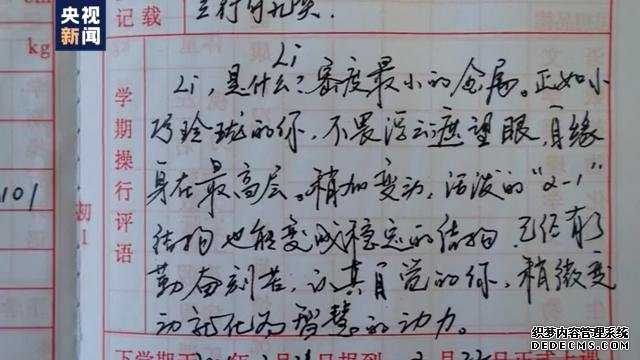 央视
新闻
记载
cm
kg
101
初1
学期操行评语
Li
Li，是什么？密度最小的金属。正如小
巧玲珑的你，不畏浮云遮望眼，自缘
身在最高层。稍加变动，活泼的“2-1”
结构也能变成稳定的结构，已经有了
勤奋刻苦，认真自觉的你，稍微变
动就化为智慧的动力。